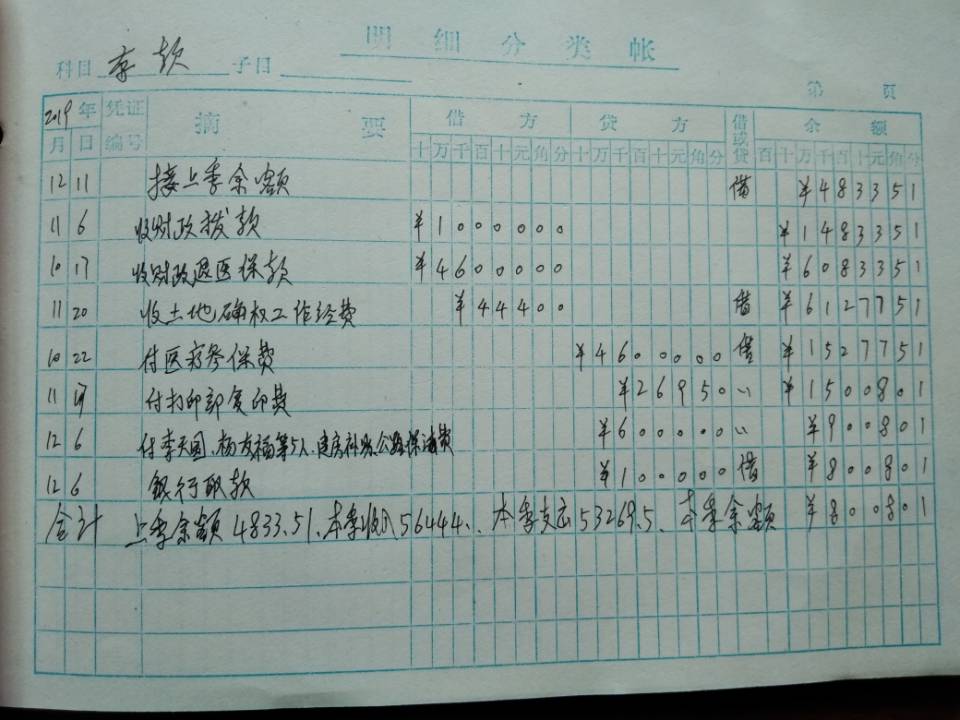 明细分类帐
科目 存款 子目
第 页
2019年 凭证 摘要 借方 贷方 借或贷 余额
月 日 编号 十万千百十元角分 十万千百十元角分 百十万千百十元角分
12 11 接上季余额 借 ¥483351
11 6 收财政拨款 ¥1000000 ¥1483351
10 17 收财政退医保款 ¥4600000 ¥6083351
11 20 收土地确权工作经费 ¥44400 借 ¥6127751
10 22 付医疗参保费 ¥4600000 借 ¥1527751
11 付打印部复印费 ¥26950 〃 ¥1500801
12 6 付李天国、杨友福等5人、建房补助、公路保洁费 ¥600000 〃 ¥900801
12 6 银行取款 ¥100000 借 ¥800801
合计 上季余额4833.51、本季收入56444.、本季支出53269.5、本季余额 ¥800801